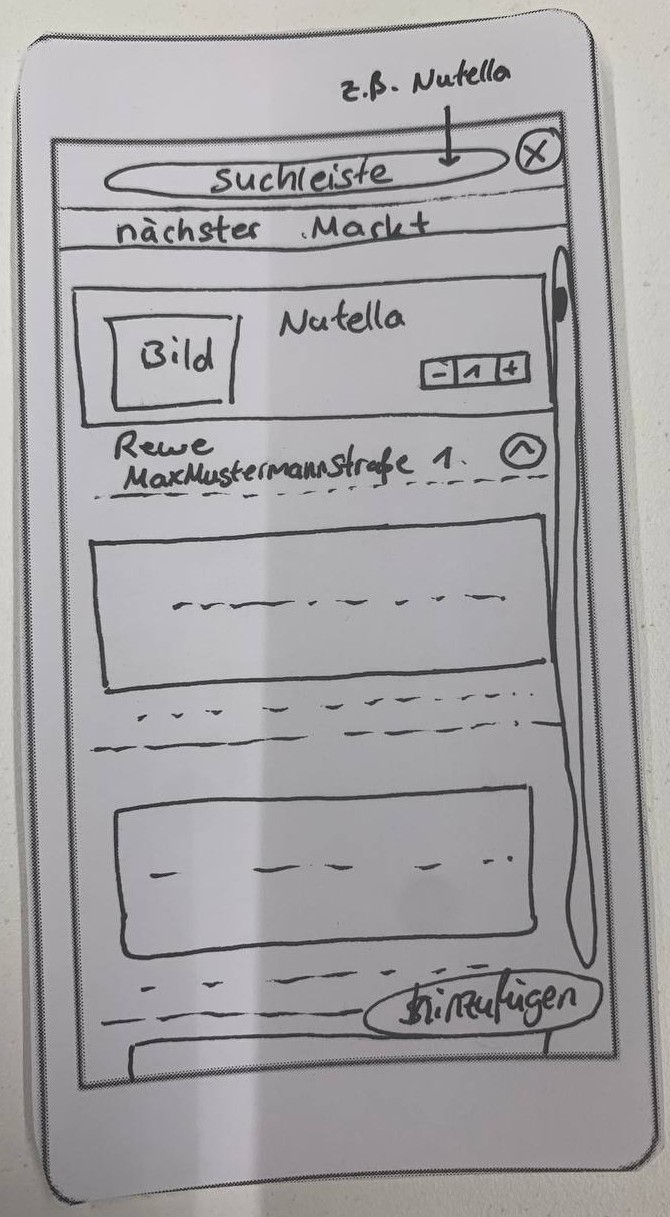 z.B. Nutella
Suchleiste
X
nächster Markt
Nutella
Bild
- 1 +
Rewe
MaxMustermannstraße 1.
hinzufügen